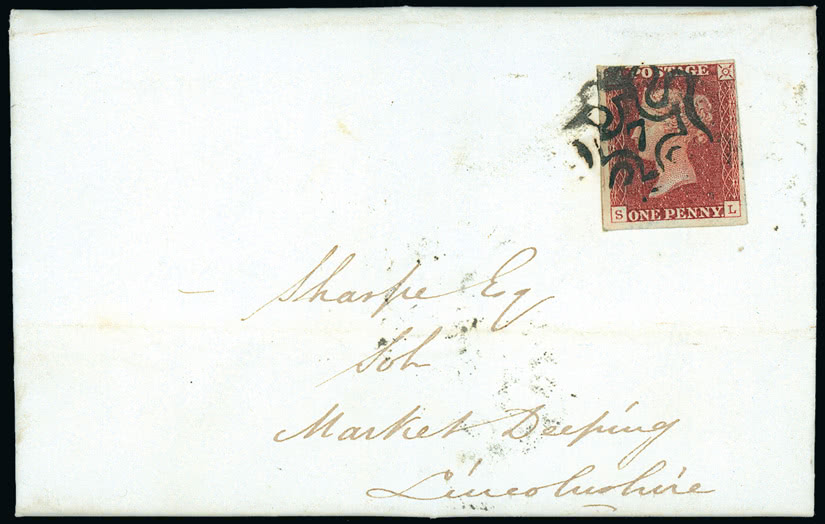 POSTAGE
7
S ONE PENNY L
— Sharpe Esq
Solr
Market Deeping
Lincolnshire